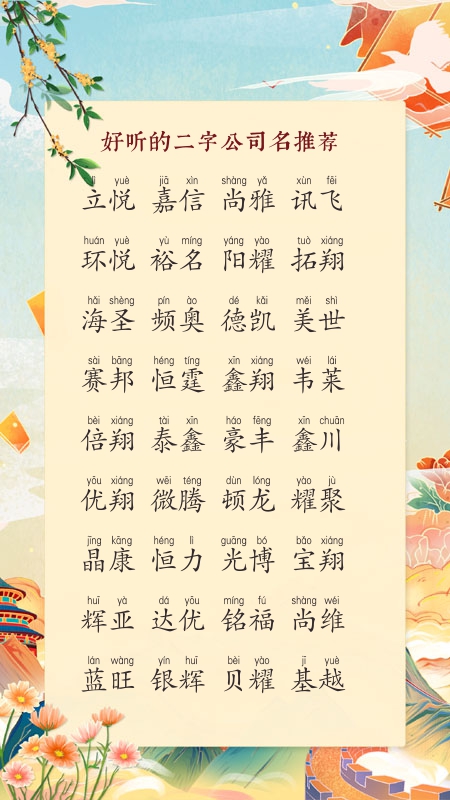 好听的二字公司名推荐
lì yuè jiā xìn shàng yǎ xùn fēi
立悦 嘉信 尚雅 讯飞
huán yuè yù míng yáng yào tuò xiáng
环悦 裕名 阳耀 拓翔
hǎi shèng pín ào dé kǎi měi shì
海圣 频奥 德凯 美世
sài bāng héng tíng xīn xiáng wéi lái
赛邦 恒霆 鑫翔 韦莱
bèi xiáng tài xīn háo fēng xīn chuān
倍翔 泰鑫 豪丰 鑫川
yōu xiáng wēi téng dùn lóng yào jù
优翔 微腾 顿龙 耀聚
jīng kāng héng lì guāng bó bǎo xiáng
晶康 恒力 光博 宝翔
huī yà dá yōu míng fú shàng wéi
辉亚 达优 铭福 尚维
lán wàng yín huī bèi yào jī yuè
蓝旺 银辉 贝耀 基越